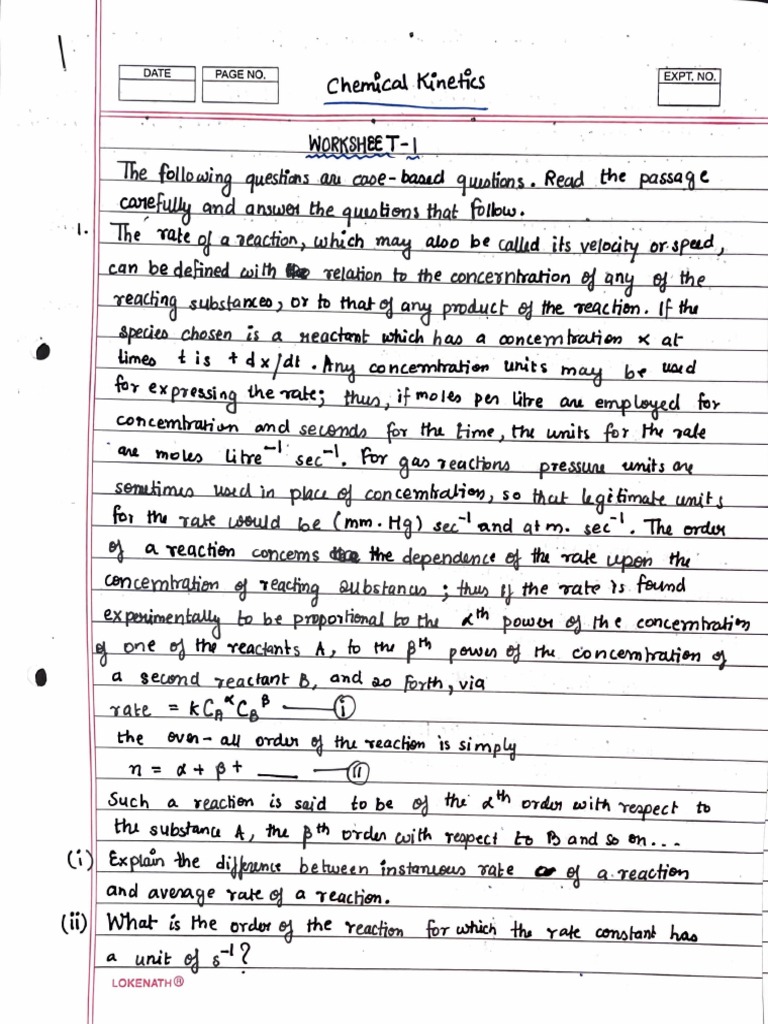 DATE
PAGE NO.
Chemical Kinetics
EXPT. NO.
WORKSHEET-1
The following questions are case-based questions. Read the passage
carefully and answer the questions that follow.
1. The rate of a reaction, which may also be called its velocity or speed,
can be defined with relation to the concerntration of any of the
reacting substances, or to that of any product of the reaction. If the
species chosen is a reactant which has a concentration x at
times t is + dx/dt. Any concentration units may be used
for expressing the rate; thus, if moles per litre are employed for
concentration and seconds for the time, the units for the rate
are moles litre⁻¹ sec⁻¹. For gas reactions pressure units are
sometimes used in place of concentration, so that legitimate units
for the rate would be (mm. Hg) sec⁻¹ and atm. sec⁻¹. The order
of a reaction concerns the dependence of the rate upon the
concentration of reacting substances; thus if the rate is found
experimentally to be proportional to the αth power of the concentration
of one of the reactants A, to the βth power of the concentration of
a second reactant B, and so forth, via
rate = kC_A^α C_B^β —— (i)
the over-all order of the reaction is simply
n = α + β + ___ —— (ii)
Such a reaction is said to be of the αth order with respect to
the substance A, the βth order with respect to B and so on...
(i) Explain the difference between instaneous rate of a reaction
and average rate of a reaction.
(ii) What is the order of the reaction for which the rate constant has
a unit of s⁻¹?
LOKENATH®